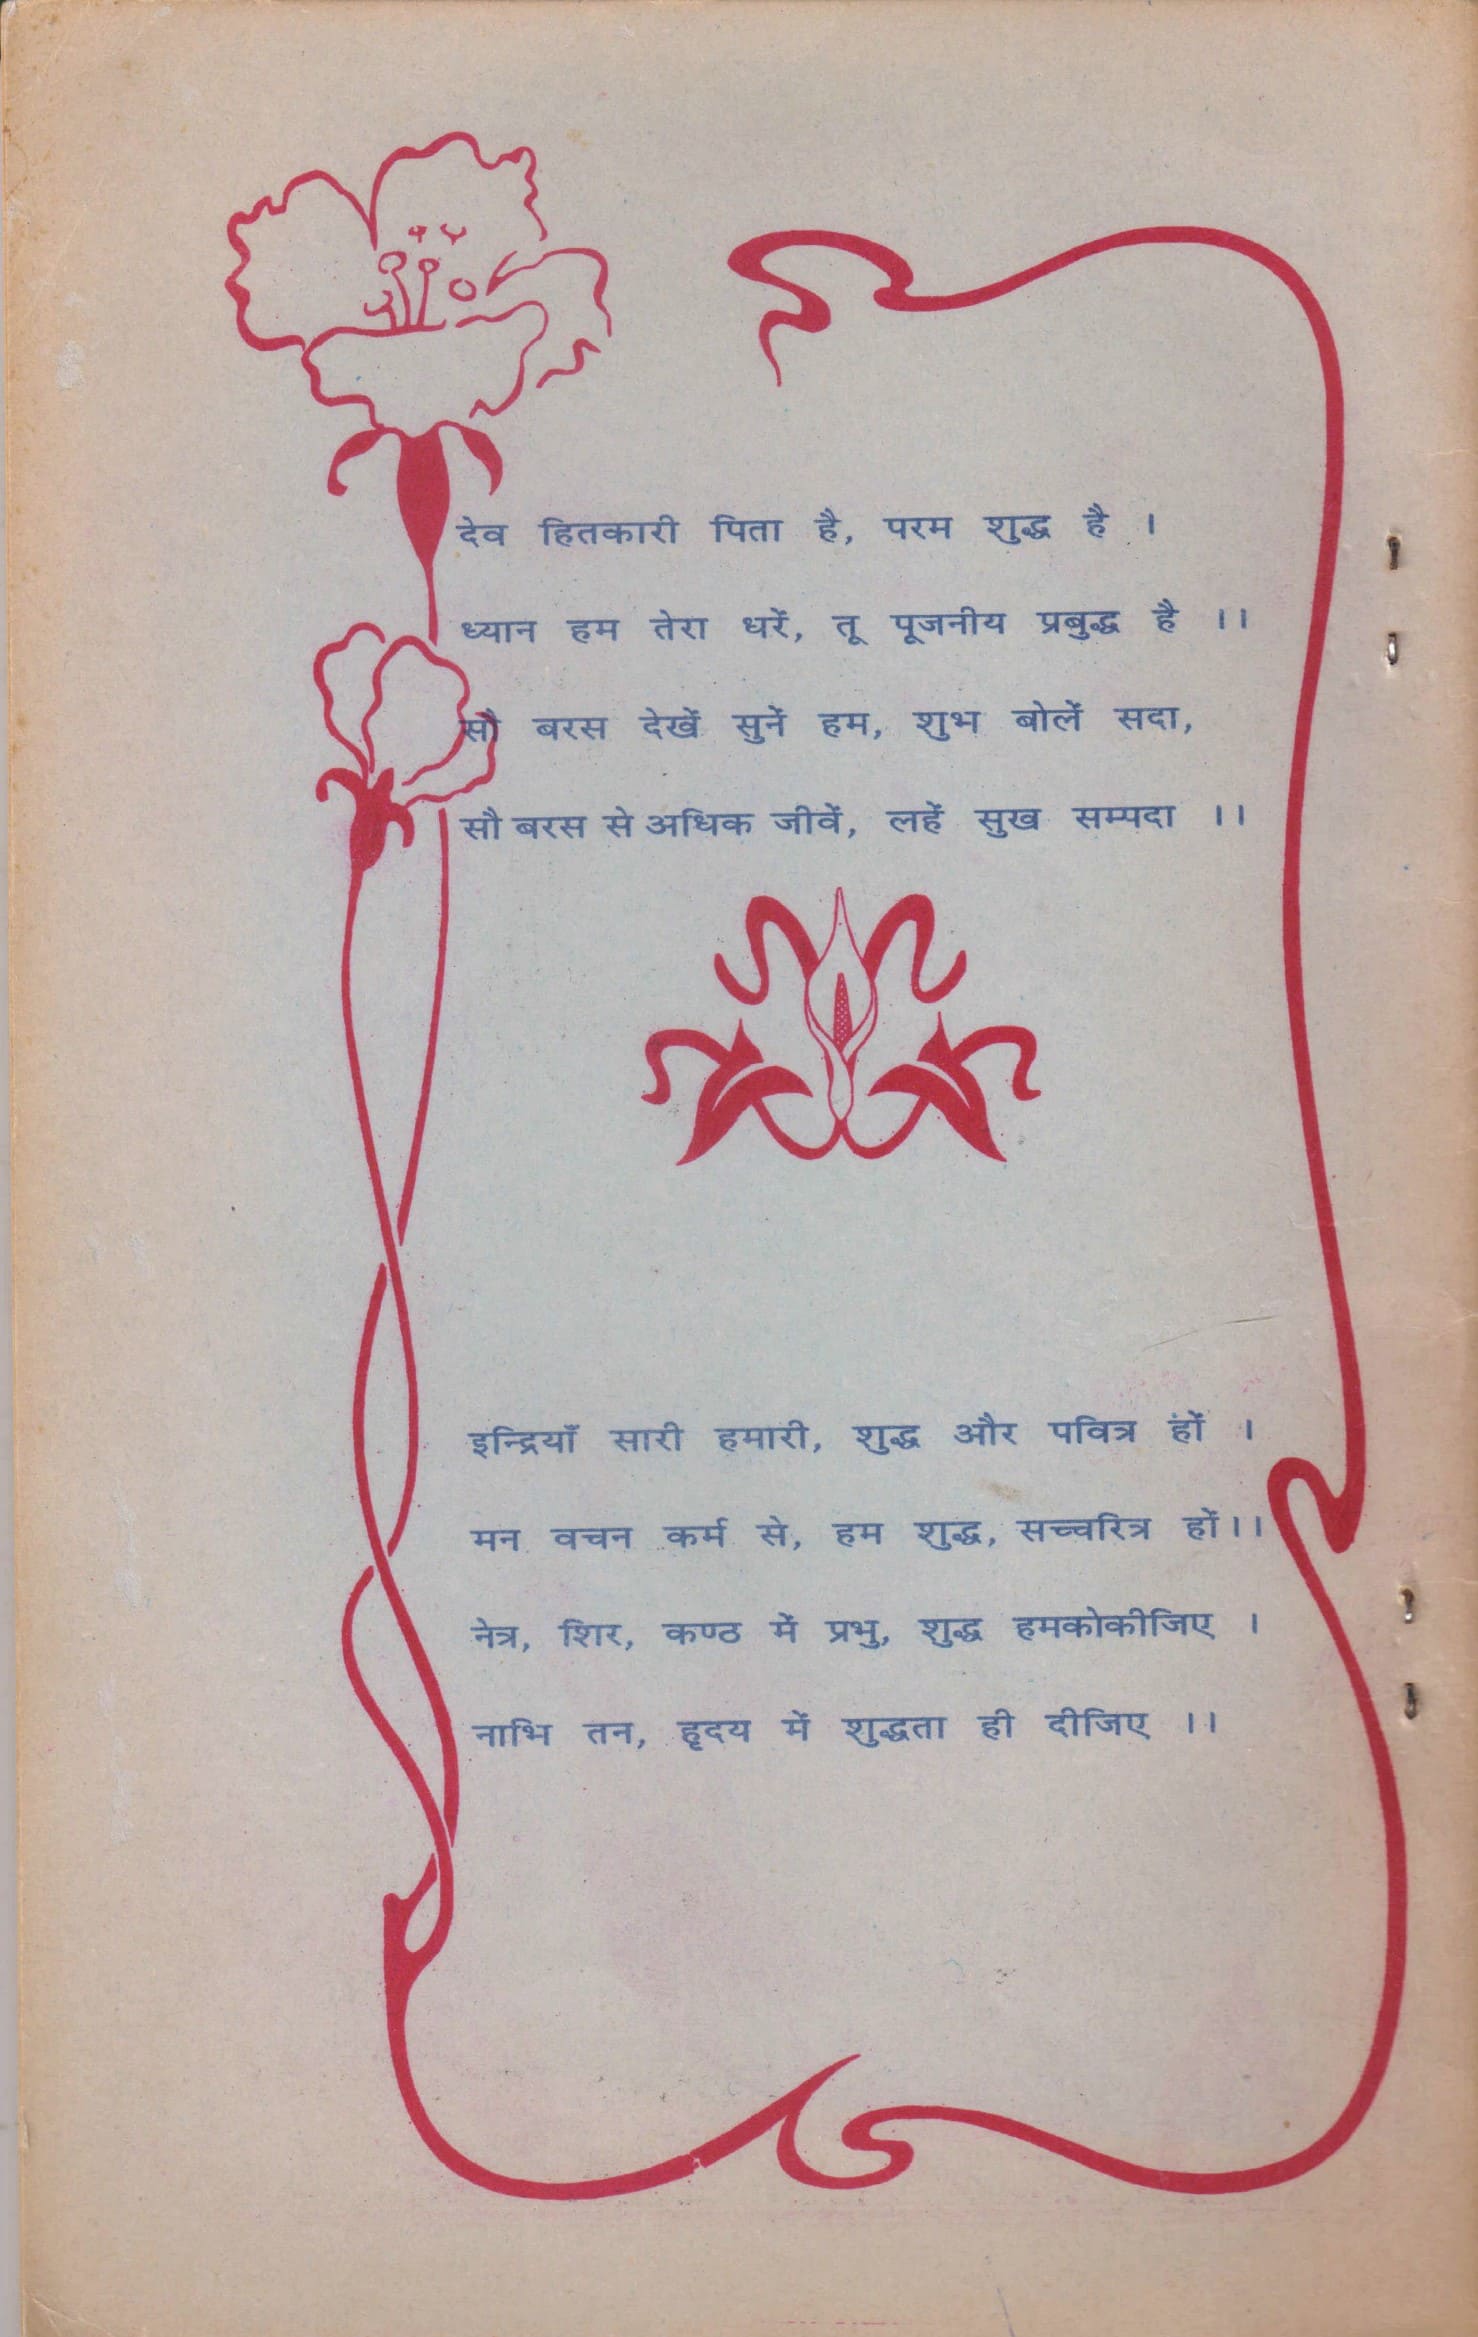 देव हितकारी पिता है, परम शुद्ध है ।
ध्यान हम तेरा धरें, तू पूजनीय प्रबुद्ध है ।।
सौ बरस देखें सुनें हम, शुभ बोलें सदा,
सौ बरस से अधिक जीवें, लहें सुख सम्पदा ।।
इन्द्रियाँ सारी हमारी, शुद्ध और पवित्र हों ।
मन वचन कर्म से, हम शुद्ध, सच्चरित्र हों।।
नेत्र, शिर, कण्ठ में प्रभु, शुद्ध हमकोकीजिए ।
नाभि तन, हृदय में शुद्धता ही दीजिए ।।